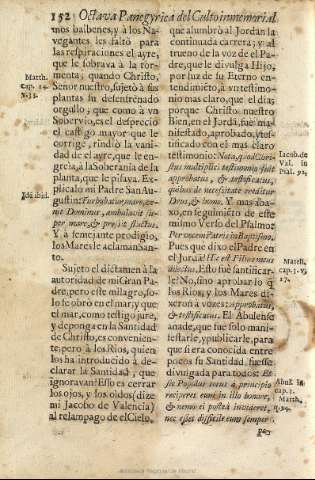 152 Octava Panegyrica del Culto inmemorial
mos baibenes, y à los Na-
vegantes les faltò para
las respiraciones el ayre,
que le sobrava à la tor-
menta; quando Christo,
Señor nuestro, sujetò à sus
plantas su desenfrenado
orgullo; que como à vn
Sobervio, es el desprecio
el castigo mayor que le
corrige, rindiò la vani-
dad de el ayre, que le en-
greia, à la Soberania de la
planta, que le pisava. Ex-
plicalo mi Padre San Au-
gustin: Turbabatur mare, ve-
nit Dominus, ambulavit su-
per mare, & pressit fluctus.
Y à semejante prodigio,
los Mares le aclaman San-
to.
Sujeto el dictamen à la
autoridad de mi Gran Pa-
dre, pero este milagro, so-
lo se obrò en el mar; y que
el mar, como testigo jure,
y deponga en la Santidad
de Christo, es convenien-
te; pero à los Rios, quien
los ha introducido à de-
clarar la Santidad, que
ignoravan? Esso es cerrar
los ojos, y los oìdos (dize
mi Jacobo de Valencia)
al relampago de el Cielo,
Matth.
cap. 14.
Ibi ibid.
que alumbrò al Jordàn la
continuada carrera; y al
trueno de la voz de el Pa-
dre, que le divulga Hijo,
por luz de su Eterno en-
tendimiento, à vn testimo-
nio mas claro, que el dia;
porque Christo nuestro
Bien, en el Jordà, fuè ma-
nifestado, aprobado, y tes-
tificado con el mas claro
testimonio: Nota, quod Chri-
stus multiplici testimonio fuit
approbatus, & testificatus,
quibus de necessitate credatur
Deus, & homo. Y mas aba-
xo, en seguimiento de este
mismo Verso del Psalmo:
Per vocem Patris in Baptismo.
Pues que dixo el Padre en
el Jordà? Hic est Filius meus
dilectus. Esto fuè santificar-
le? No, sino aprobar lo q̃
los Rios, y los Mares di-
xeron à vozes: approbatus,
& testificatus. El Abulense
anade, que fue solo mani-
festarle, y publicarle, para
que si era conocida entre
pocos su Santidad, fuesse
divulgada para todos: Et
sic Populus totus à principio
reciperet eum in illo honore,
& nemo ei posteà invideret,
nec esset difficile eum semper
Iacob. de
Val. in
Psal. 92.
Matth.
cap. 3. V.
17.
Abul. in
cap. 3.
Matth.
q. 94.
Biblioteca Nacional de Madrid